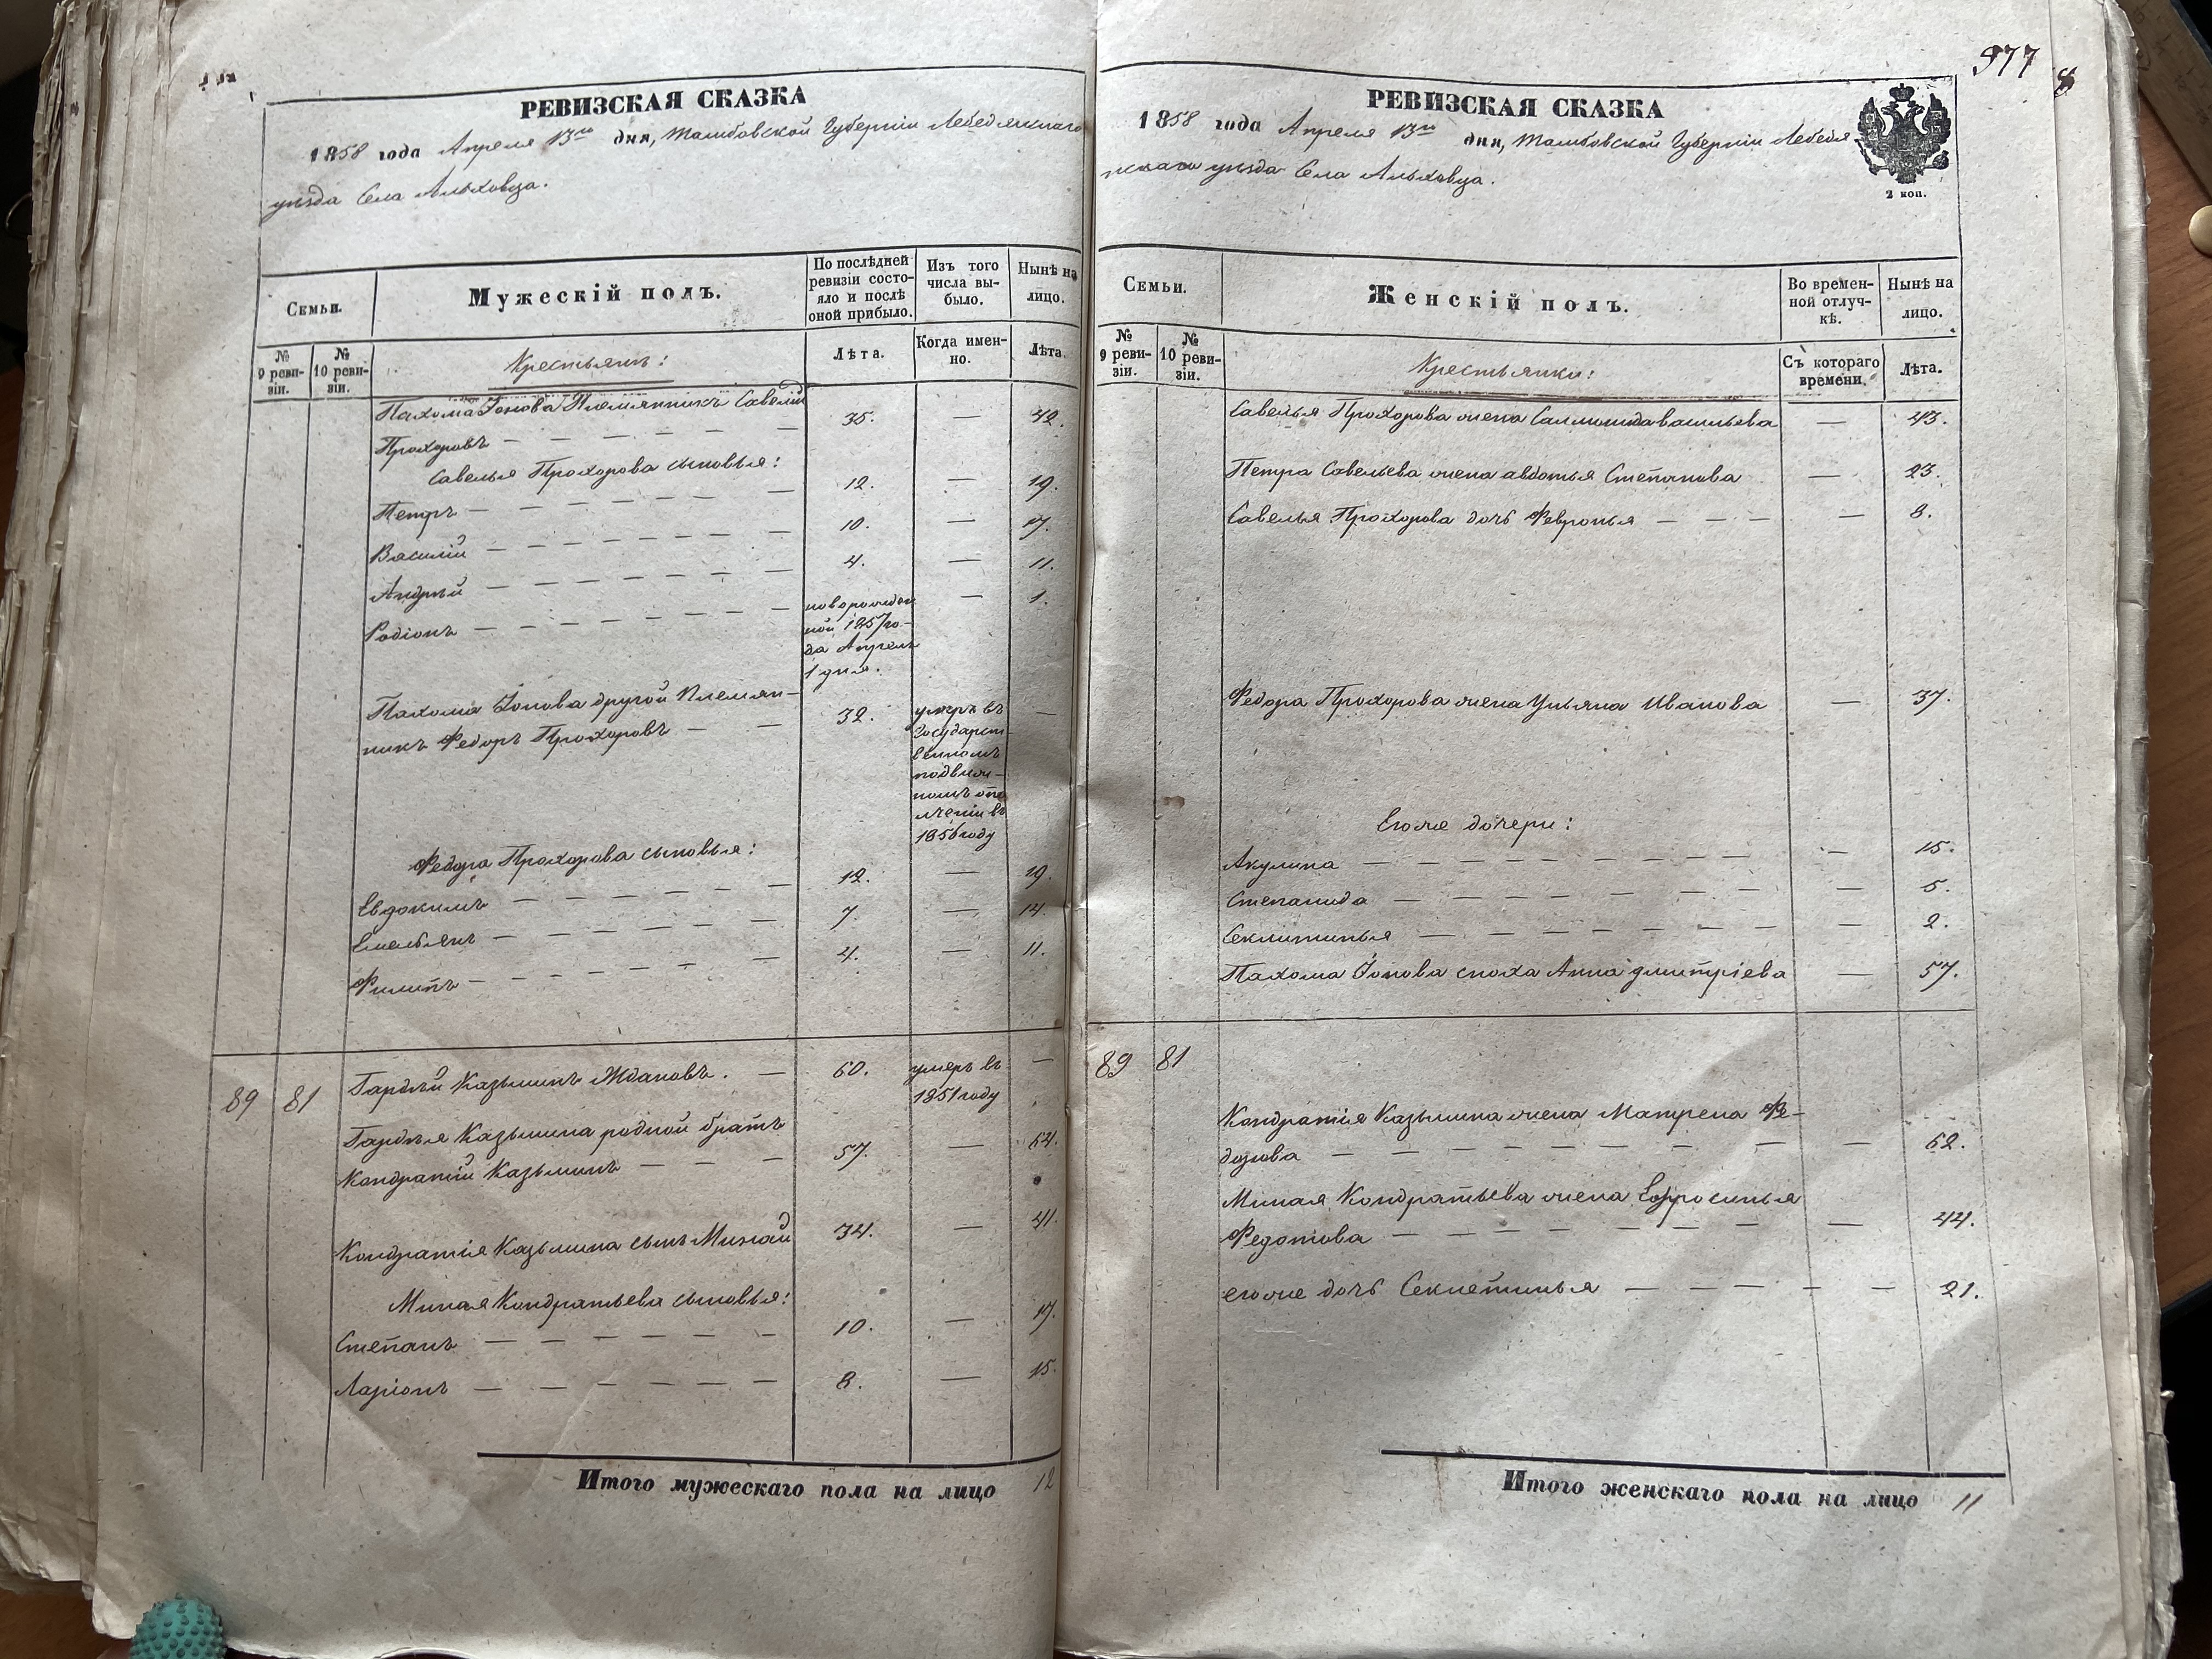 РЕВИЗСКАЯ СКАЗКА
1858 года Апреля 13го дня, Тамбовской Губерніи Лебедянскаго
уѣзда Села Альховца.
Семьи.
Мужескій полъ.
По послѣдней ревизіи состояло и послѣ оной прибыло.
Изъ того числа выбыло.
Нынѣ на лицо.
№ 9 ревизіи.
№ 10 ревизіи.
Крестьянъ:
Лѣта.
Когда именно.
Лѣта.
Пахома Іонова Племянникъ Савелій
Прохоровъ — 35. — 42.
Савелья Прохорова сыновья:
Петръ — 12. — 19.
Василій — 10. — 17.
Андрѣй — 4. — 11.
Родіонъ — новорожден
ной 1857 го-
да Апреля
1 дня. — 1.
Пахома Іонова другой Племян-
никъ Федоръ Прохоровъ — 32.
умеръ въ
Государст
венномъ
подвиж-
номъ опо
лченіи въ
1856 году
—
Федора Прохорова сыновья:
Евдокимъ — 12. — 19.
Емельянъ — 7. — 14.
Филипъ — 4. — 11.
89 81 Гардѣй Казьминъ Ждановъ. — 60. умеръ въ —
1851 году
Гардѣя Казьмина родной братъ
Кондратій Казьминъ — 57. — 64.
Кондратія Казьмина сынъ Минай 34. — 41.
Миная Кондратьева сыновья:
Степанъ — 10. — 17.
Ларіонъ — 8. — 15.
Итого мужескаго пола на лицо 12
977
РЕВИЗСКАЯ СКАЗКА
1858 года Апреля 13го дня, Тамбовской Губерніи Лебедя
нскаго уѣзда Села Альховца.
2 коп.
Семьи.
Женскій полъ.
Во временной отлучкѣ.
Нынѣ на лицо.
№ 9 ревизіи.
№ 10 ревизіи.
Крестьянки:
Съ котораго времени.
Лѣта.
Савелья Прохорова жена Саламанида васильева — 43.
Петра Савельева жена авдотья Степанова — 23.
Савелья Прохорова дочь Февронья — 8.
Федора Прохорова жена Ульяна Иванова — 37.
Егоже дочери:
Акулина — 15.
Степанида — 5.
Секлитинья — 2.
Пахома Іонова сноха Анна дмитріева — 57.
89 81
Кондратія Казьмина жена Матрена Фе-
дорова — 62.
Миная Кондратьева жена Ефросинья
Федотова — 44.
егоже дочь Секлетинья — 21.
Итого женскаго пола на лицо 11